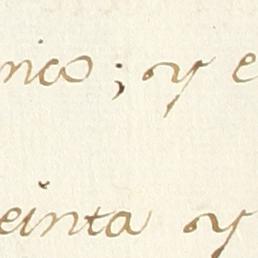 nco; y e
einta y